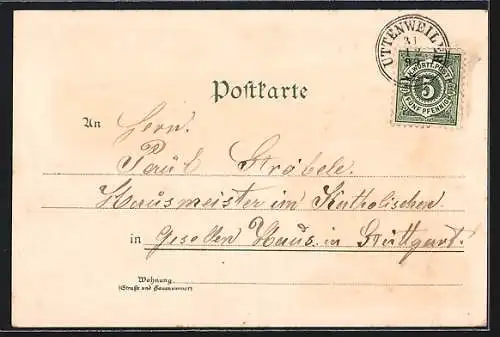 UTTENWEILER
31
12
K. WÜRTT. POST
5
FÜNF PFENNIG
Postkarte
An Herrn.
Paul Ströbele.
Hausmeister im Katholischen
in Gesellen Haus in Stuttgart.
Wohnung
(Straße und Hausnummer)